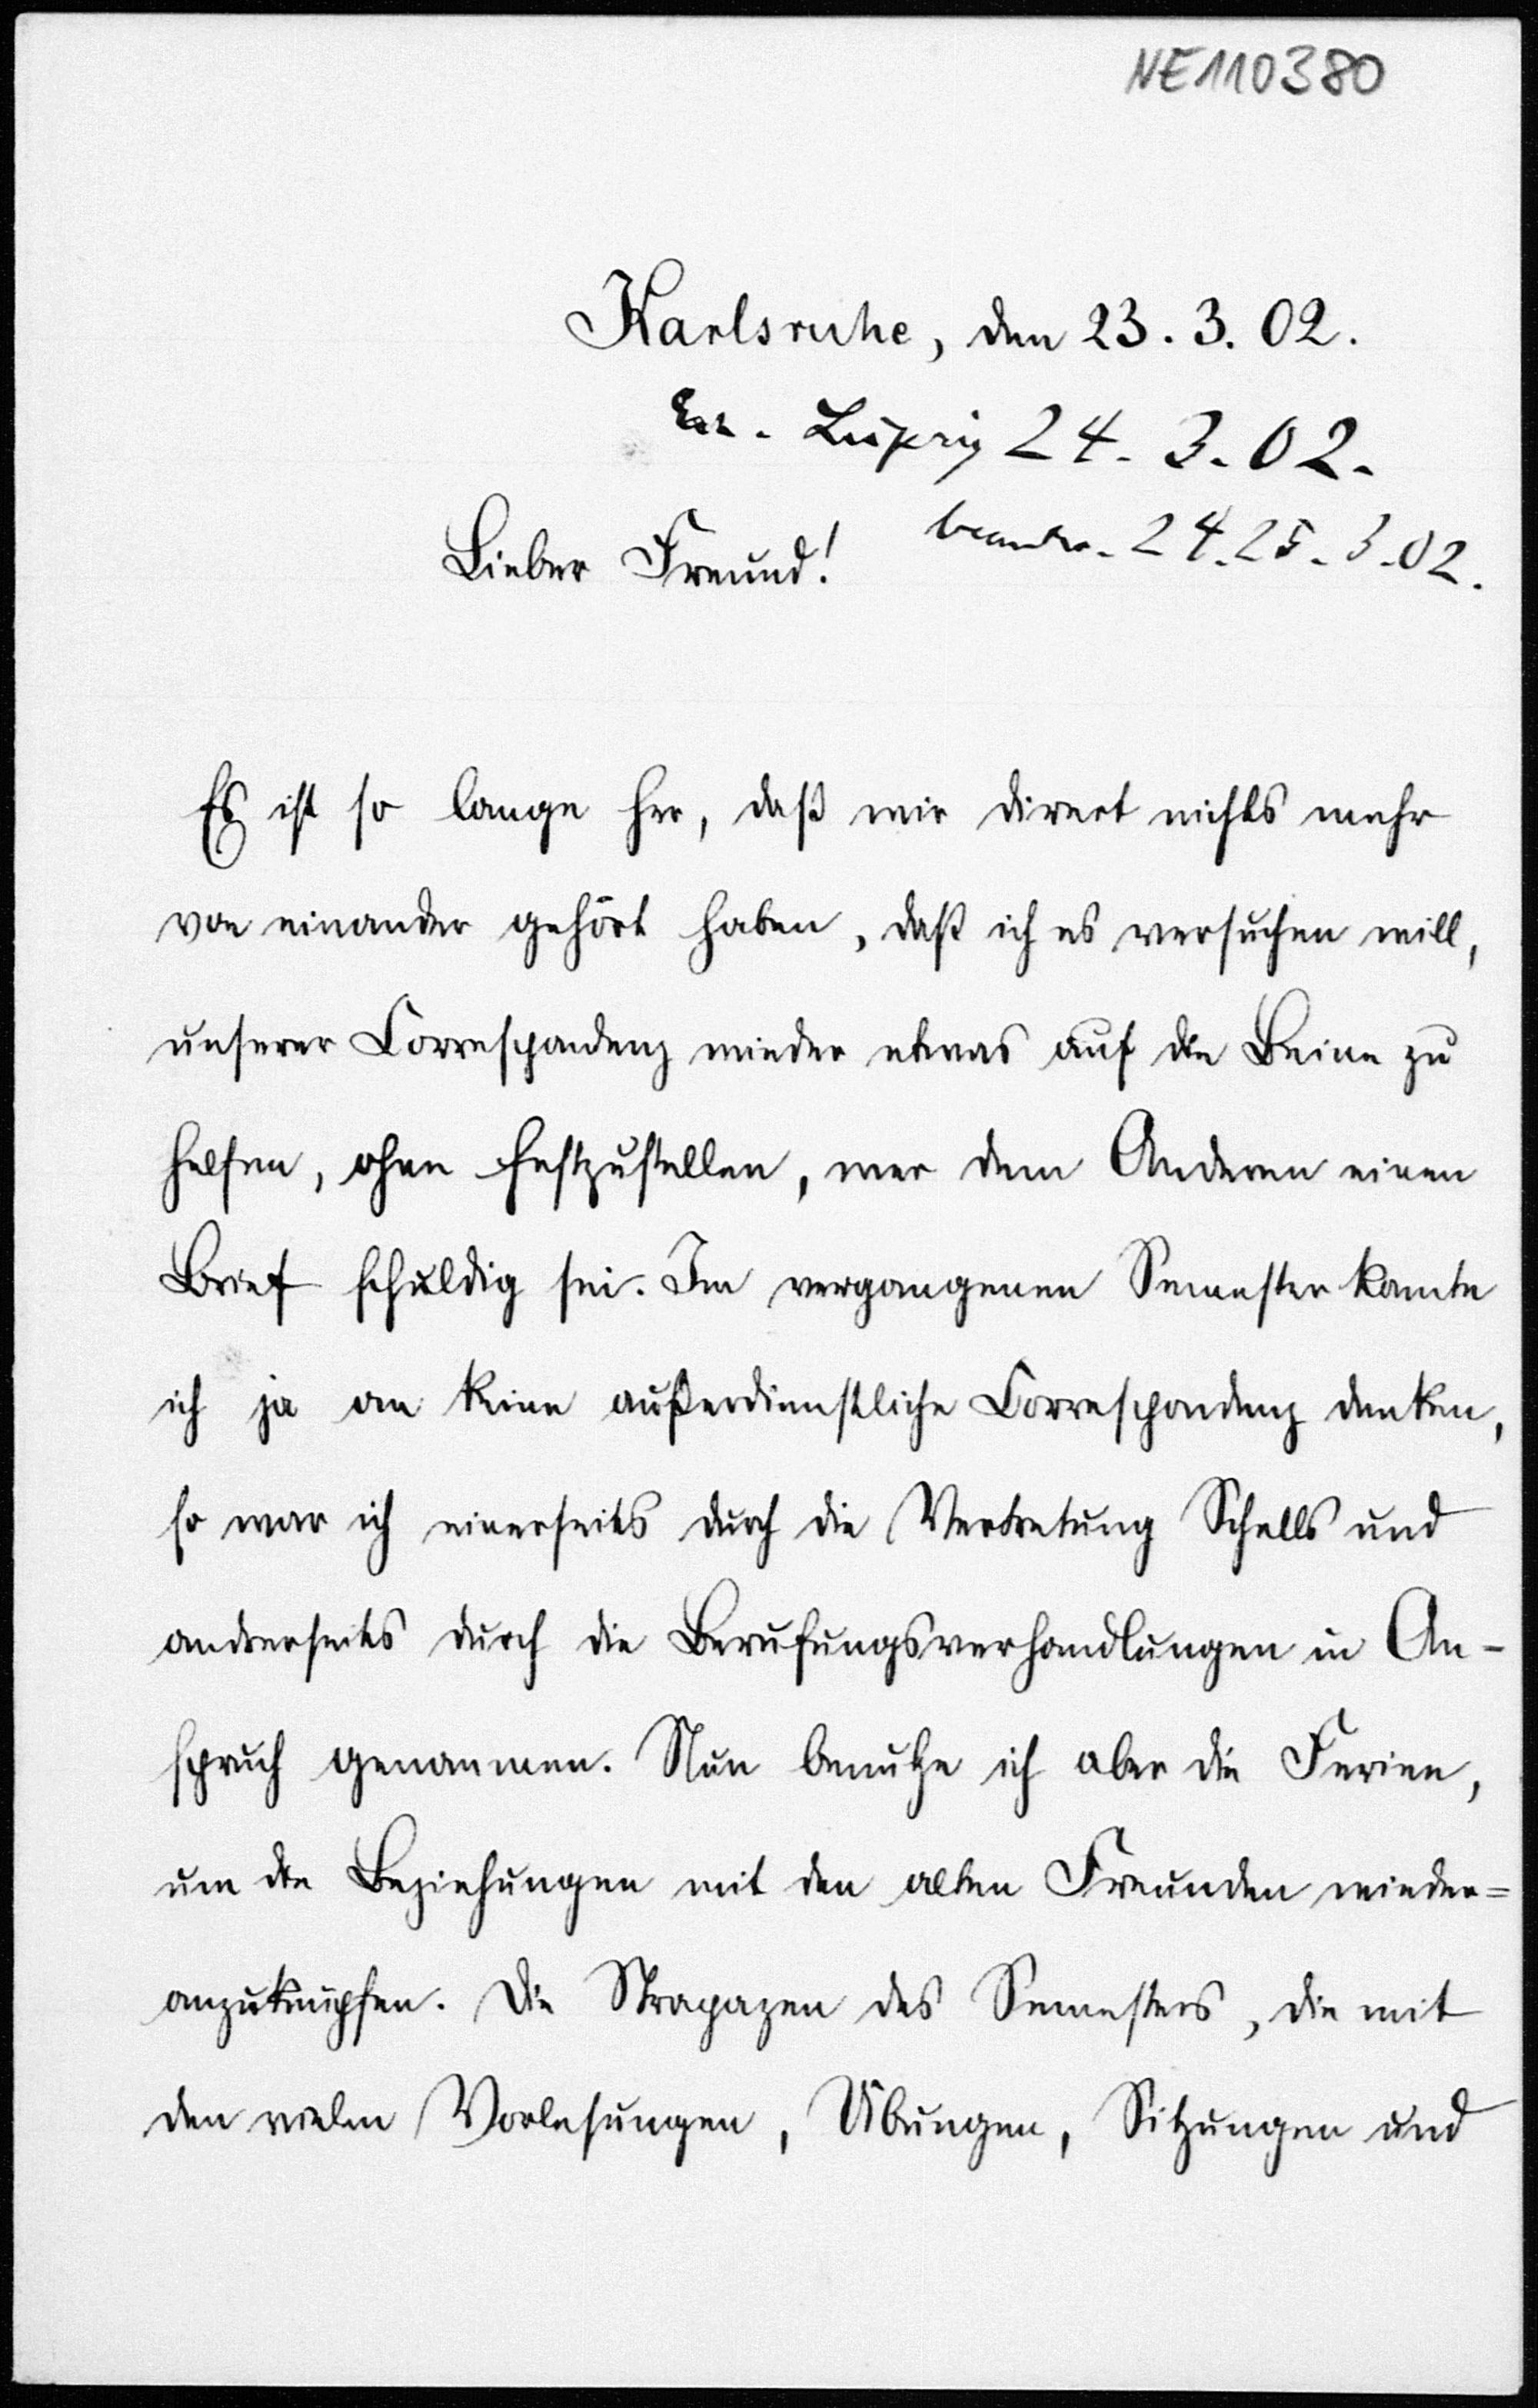 NE110380
Karlsruhe, den 23. 3. 02.
Leipzig 24. 3. 02.
24. 25. 3. 02.
Lieber Freund!
Es ist so lange her, daß wir direct nichts mehr
von einander gehört haben, daß ich es versuchen will,
unserer Correspondenz wieder etwas auf die Beine zu
helfen, ohne festzustellen, wer dem Anderen einen
Brief schuldig sei. Im vergangenen Semester konnte
ich ja an keine außerdienstliche Correspondenz denken,
so war ich einerseits durch die Vertretung Schells und
andrerseits durch die Berufungsverhandlungen in An-
spruch genommen. Nun benutze ich aber die Ferien,
um die Beziehungen mit den alten Freunden wieder=
anzuknüpfen. Die Strapazen des Semesters, die mit
den vielen Vorlesungen, Übungen, Sitzungen und